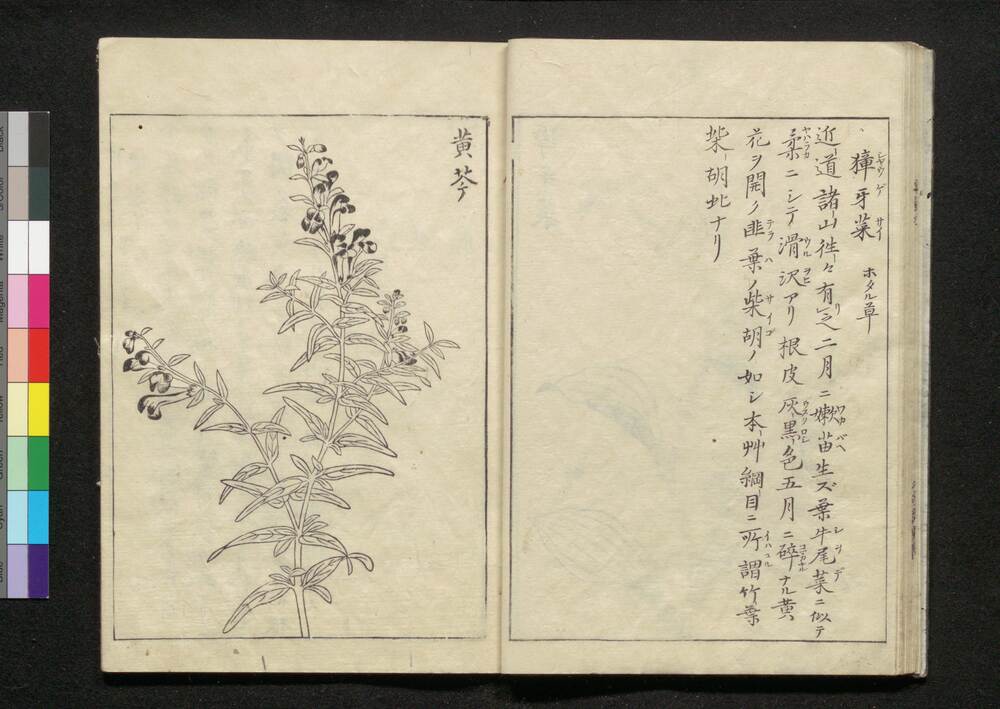 獐牙菜 ホタル草
近道諸山徃々有之二月ニ嫰苗生ズ葉牛尾菜ニ似テ
柔ニシテ滑沢アリ根皮灰黒色五月ニ碎ナル黄
花ヲ開ク韭葉ノ柴胡ノ如シ本艸綱目ニ所謂竹葉
柴胡此ナリ
黄芩